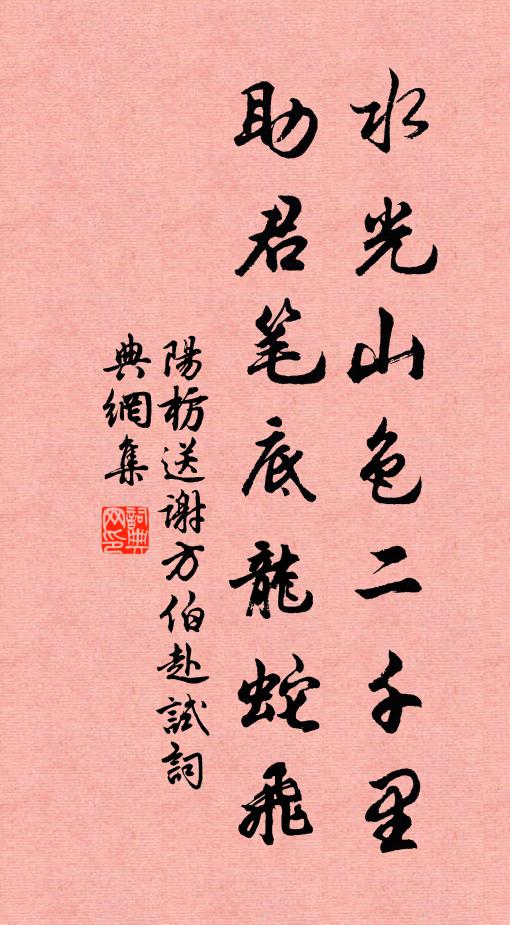 水光山色二千里
助君笔底龍蛇飛
陽枋送谢方伯赴試詞
典網集
詞典网印